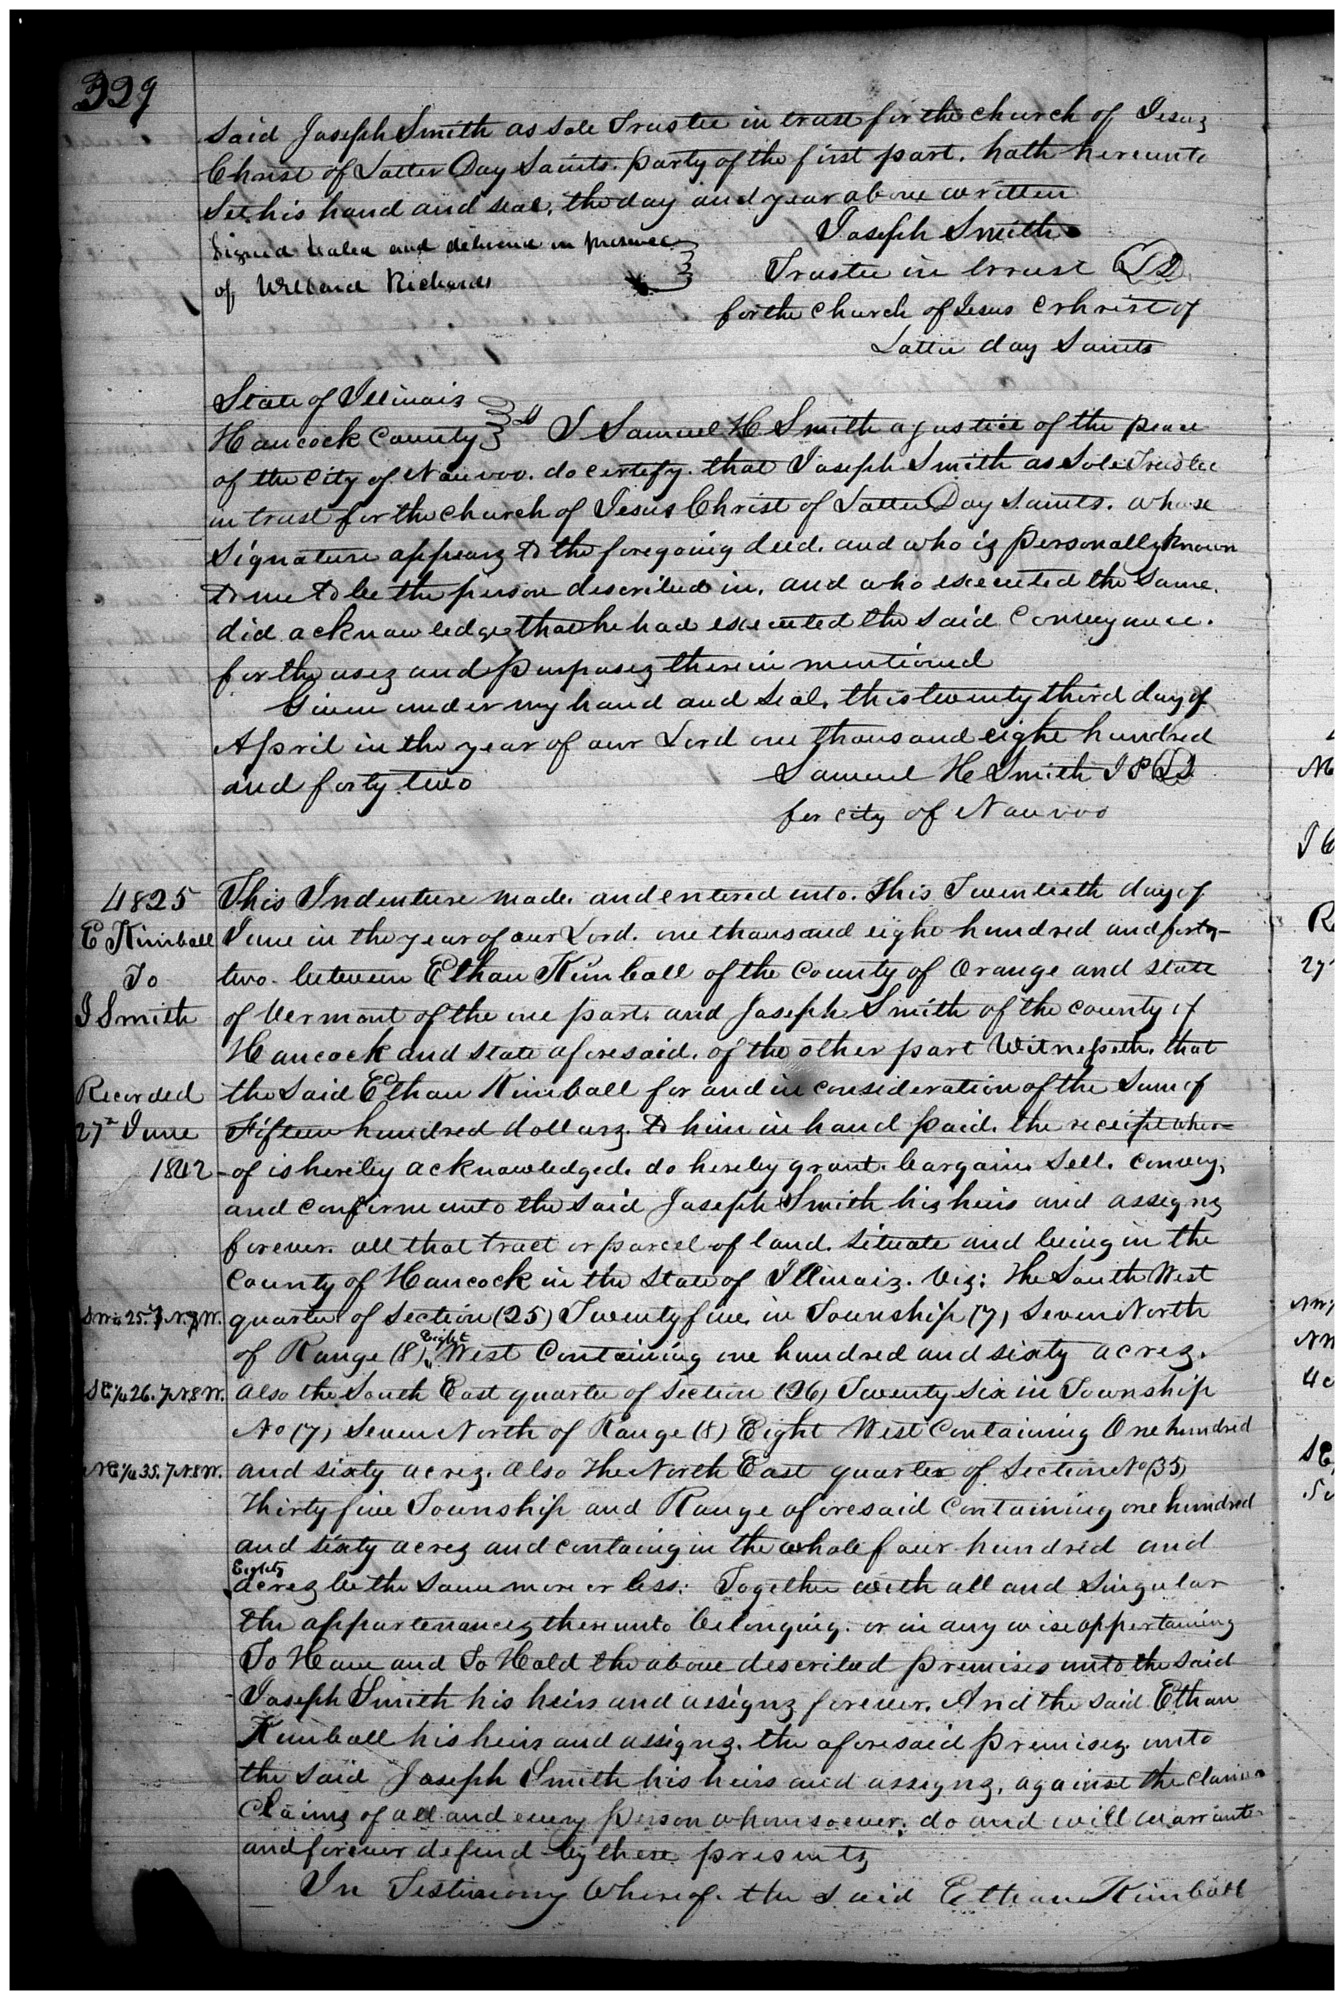 329
said Joseph Smith as sole Trustee in trust for the church of Jesus
Christ of Latter Day Saints. party of the first part. hath hereunto
Set his hand and seal, the day and year above written
Signed Sealed and delivered in presence
of Willard Richards
Joseph Smith
Trustee in trust LS
for the church of Jesus Crhrist of
Latter day Saints
State of Illinois
Hancock County ss I Samuel H Smith a justice of the peace
of the city of Nauvoo. do certify. that Joseph Smith as Sole Trustee
in trust for the church of Jesus Christ of Latter Day Saints. whose
Signature appears to the foregoing deed. and who is personally known
to me to be the person described in, and who executed the same.
did acknowledge that he had executed the said Conveyance.
for the uses and purposes therein mentioned
Given under my hand and Seal, this twenty third day of
April in the year of our Lord one thousand eight hundred
and forty two
Samuel H Smith J P LS
for city of Nauvoo
4825
E Kimball
To
J Smith
Recorded
27th June
1842
This Indenture made. and entered into. This Twentieth day of
June in the year of our Lord. one thousand eight hundred and forty-
two. between Ethan Kimball of the County of Orange and state
of Vermont of the one part. and Joseph Smith of the county of
Hancock and state aforesaid. of the other part Witnesseth. that
the Said Ethan Kimball for and in consideration of the Sum of
Fifteen hundred dollars. to him in hand paid. the receipt wher=
of is hereby acknowledged. do hereby grant. bargain. Sell. convey,
and confirm unto the said Joseph Smith his heirs and assigns
forever. all that tract or parcel of land. situate and being in the
County of Hancock in the State of Illinois. Viz: The South West
S.W. 25. 7.N. W. quarter of section (25) Twenty five, in Township (7) Seven North
of Range (8) Eight West Containing one hundred and sixty acres.
SE 1/4 26. 7.N.8W. also the South East quarter of Section (26) Twenty Six in Township
No (7) Seven North of Range (8) Eight West Containing One hundred
NE 1/4 35. 7.N.8W. and sixty acres. also The North East quarter of Section No (35)
Thirty five Township and Range aforesaid containing one hundred
and sixty acres and containg in the whole four hundred and
Eighty
acres be the Same more or less: Together with all and Singular
the appartenances thereunto belonging. or in any wise appertaining
To Have and To Hold the above described premises unto the said
Joseph Smith his heirs and assigns forever. And the said Ethan
Kimball his heirs and assigns. the aforesaid premises. unto
the said Joseph Smith his heirs and assigns, against the claim
Claims of all and every person whomsoever. do and will warrant
and forever defend by these presents
In Testimony Whereof. the said Ethan Kimball